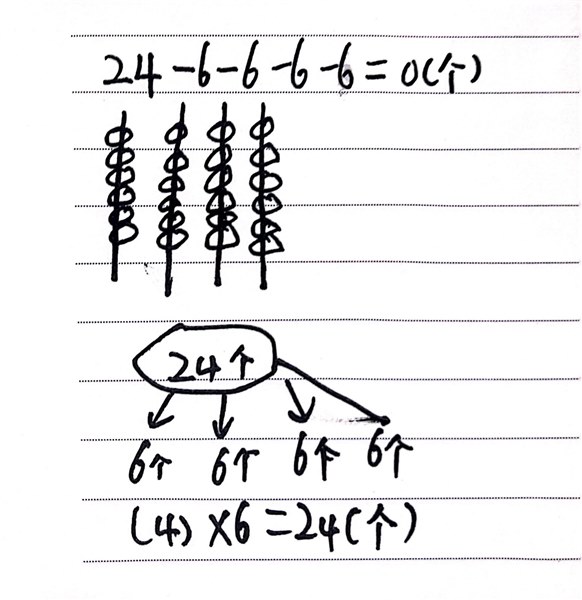 24-6-6-6-6=0(个)
24个
6个 6个 6个 6个
(4)×6=24(个)